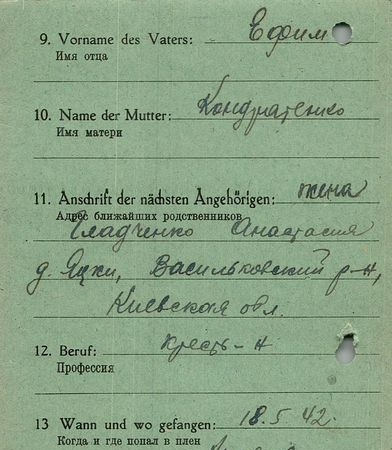 9. Vorname des Vaters: Ефим
Имя отца
10. Name der Mutter: Кондратенко
Имя матери
11. Anschrift der nächsten Angehörigen: жена
Адрес ближайших родственников
Гладченко Анастасия
д. Яцки, Васильковский р-н,
Киевская обл.
12. Beruf: кресть-н
Профессия
13 Wann und wo gefangen: 18.5.42.
Когда и где попал в плен